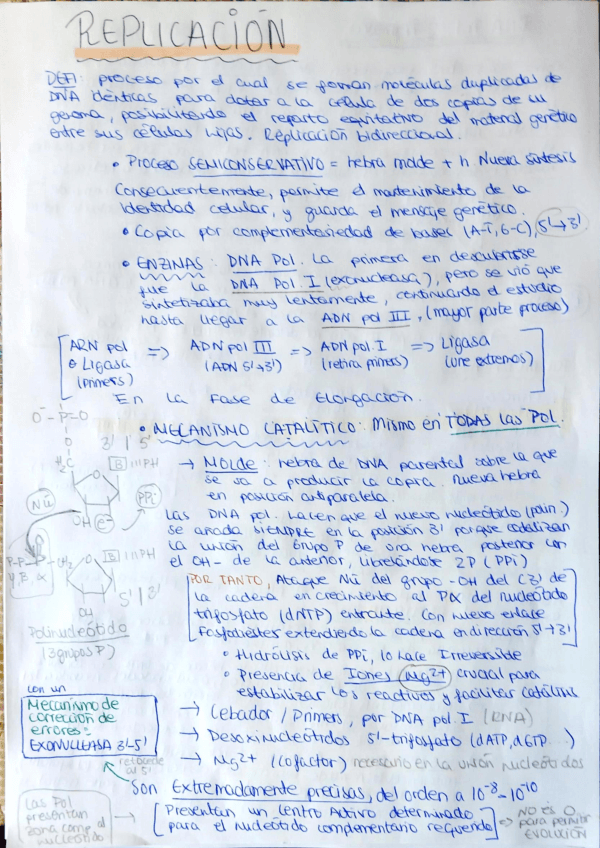 REPLICACIÓN
DEFI: proceso por el cual se forman moléculas duplicadas de
DNA idénticas para dotar a la célula de dos copias de su
genoma, posibilitando el reparto equitativo del material genético
entre sus células hijas. Replicación bidireccional.
• Proceso SEMICONSERVATIVO = hebra molde + h Nueva síntesis
Consecuentemente, permite el mantenimiento de la
identidad celular, y guarda el mensaje genético.
• Copia por complementariedad de bases (A-T, G-C), 5'→3'
• ENZINAS: DNA Pol. La primera en descubrirse
fue la DNA Pol. I (exonucleasa), pero se vió que
sintetizaba muy lentamente, continuando el estudio
hasta llegar a la ADN pol III, (mayor parte proceso)
ARN pol => ADN pol III => ADN pol. I => Ligasa
Ligasa (ADN 5'→3') (retira primers) (une extremos)
(primers)
En la Fase de Elongación.
• MECANISMO CATALÍTICO: Mismo en TODAS las Pol.
O⁻-P=O
O 3' 5'
H₂C
B
→ Molde: hebra de DNA parental sobre la que
se va a producir la copia. nueva hebra
en posición antiparalela.
Nú
PPi
OH e-
Las DNA pol. hacen que el nuevo nucleótido (polin.)
se añada SIEMPRE en la posición 3' porque catalizan
la unión del Grupo P de una hebra posterior con
el OH- de la anterior, liberándose 2P (PPi)
P-P-P-CH₂ B
γ, β, α
5' 3'
OH
Polinucleótido
(3 grupos P)
POR TANTO, Ataque Nú del grupo -OH del C3' de
la cadena en crecimiento al Pα del nucleótido
trifosfato (dNTP) entrante. Con nuevo enlace
Fosfodiéster extendiendo la cadena en dirección 5'→3'
• Hidrólisis de PPi, lo hace Irreversible
• Presencia de Iones Mg2+ crucial para
estabilizar los reactivos y facilitar catálisis
→ Cebador / Primers, por DNA pol. I (RNA)
→ Desoxinucleótidos 5'-trifosfato (dATP, dGTP...)
→ Mg2+ (cofactor) necesario en la unión nucleótidos
con un
Mecanismo de
correción de
errores:
EXONUCLEASA 3'-5'
retrocede
al 5'
Son Extremadamente precisas, del orden a 10⁻⁸-10⁻¹⁰
Las Pol
presentan
zona comp. al
nucleótido
Presentan un Centro Activo determinado
para el nucleótido complementario requerido
=> NO ES 0,
para permitir
EVOLUCIÓN